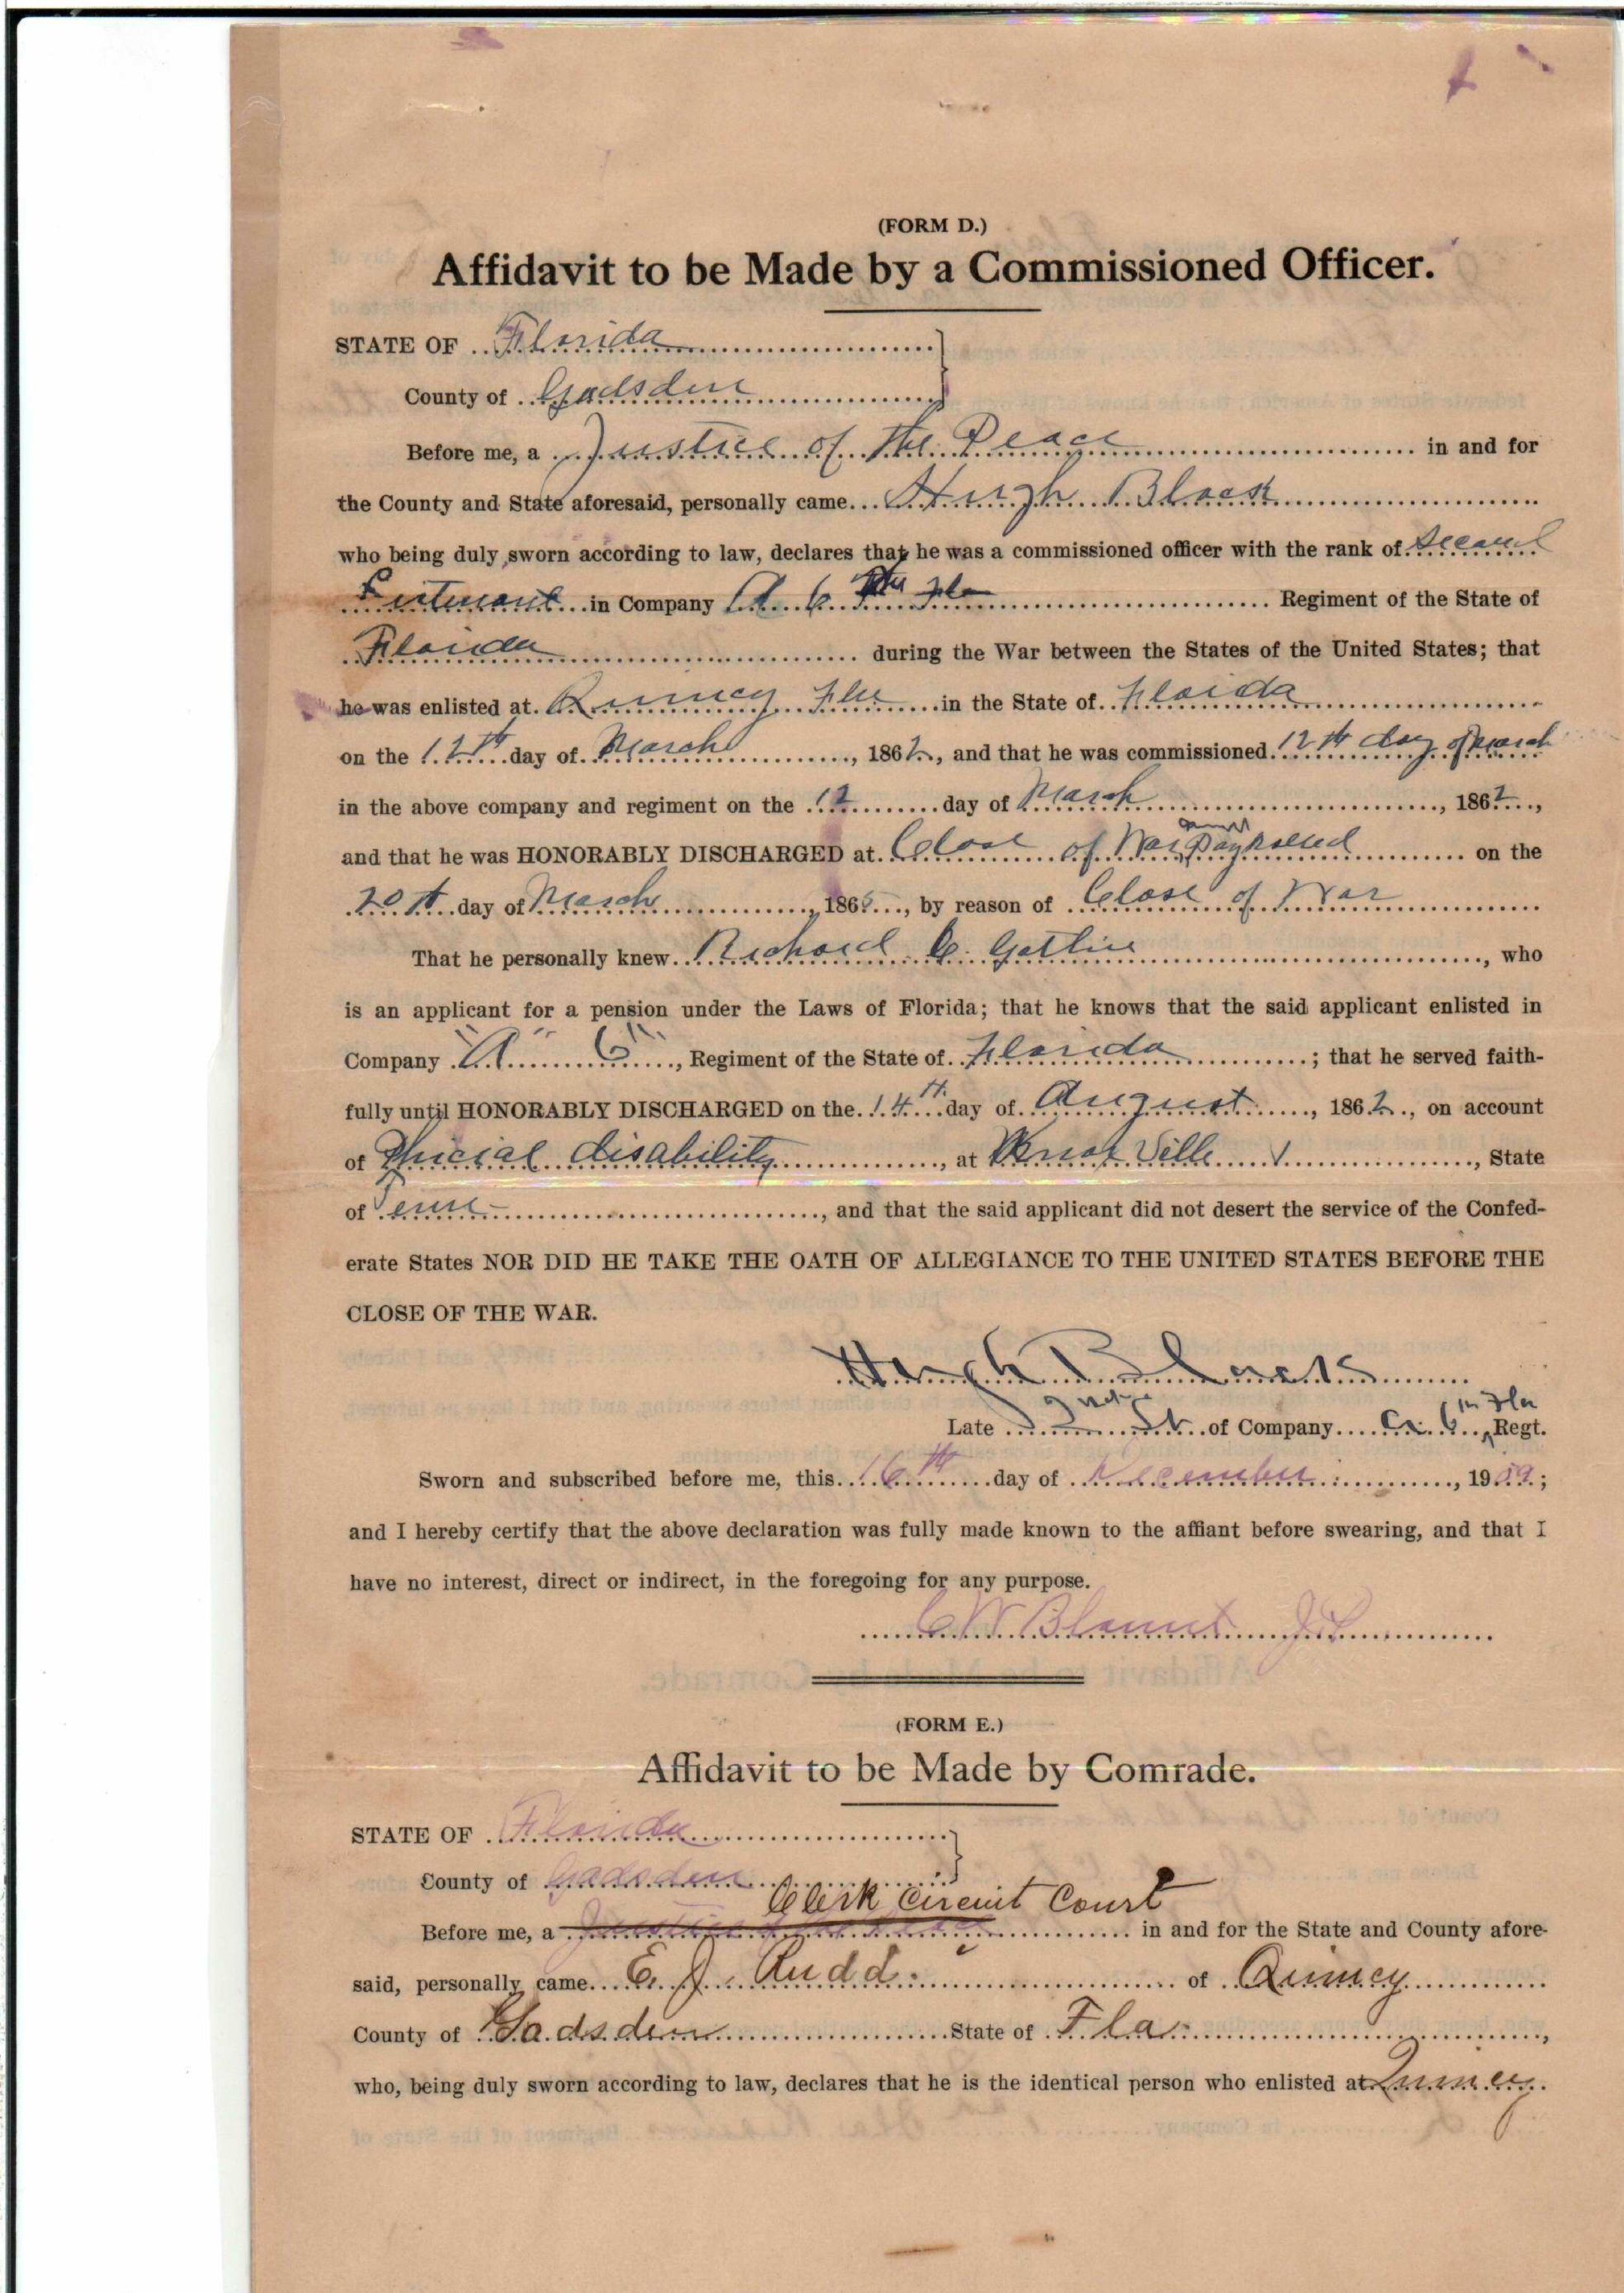 (FORM D.)
Affidavit to be Made by a Commissioned Officer.
STATE OF Florida
County of Gadsden
Before me, a Justice of the Peace in and for
the County and State aforesaid, personally came Hugh Black
who being duly sworn according to law, declares that he was a commissioned officer with the rank of Second
Lieutenant in Company A. 6 Fla Regiment of the State of
Florida during the War between the States of the United States; that
he was enlisted at Quincy Fla in the State of Floida
on the 12th day of March, 1862, and that he was commissioned 12th day of March
in the above company and regiment on the 12 day of March, 1862,
and that he was HONORABLY DISCHARGED at Close of War on the
20th day of March, 1865, by reason of Close of War
That he personally knew Richard C. Gatlin, who
is an applicant for a pension under the Laws of Florida; that he knows that the said applicant enlisted in
Company "A" 6", Regiment of the State of Florida; that he served faith-
fully until HONORABLY DISCHARGED on the 14th day of August, 1862, on account
of Phicial disability, at Knoxville, State
of Tenn, and that the said applicant did not desert the service of the Confed-
erate States NOR DID HE TAKE THE OATH OF ALLEGIANCE TO THE UNITED STATES BEFORE THE
CLOSE OF THE WAR.
Hugh Black
Late 2 Lt. of Company A. 6 Fla Regt.
Sworn and subscribed before me, this 16th day of December, 1909;
and I hereby certify that the above declaration was fully made known to the affiant before swearing, and that I
have no interest, direct or indirect, in the foregoing for any purpose.
C W Blount J.P.
(FORM E.)
Affidavit to be Made by Comrade.
STATE OF Florida
County of Gadsden
Clerk Circuit Court
Before me, a Justice of the Peace in and for the State and County afore-
said, personally came E. J. Rudd. of Quincy
County of Gadsden State of Fla.,
who, being duly sworn according to law, declares that he is the identical person who enlisted at Quincy